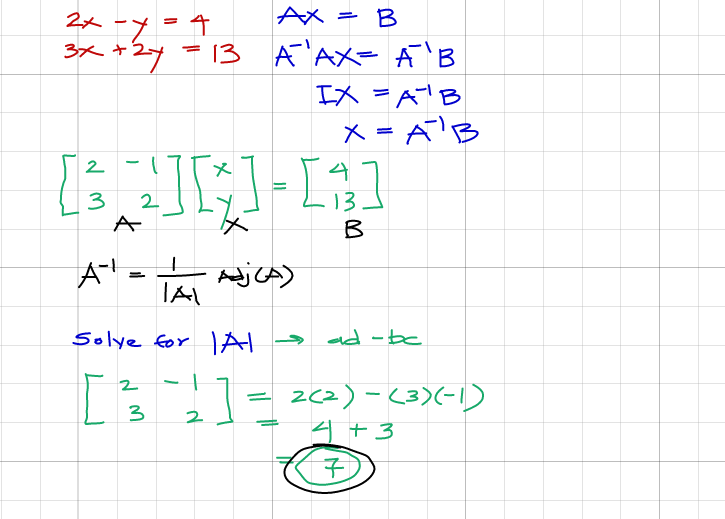 2x - y = 4
3x + 2y = 13
AX = B
A⁻¹AX = A⁻¹B
IX = A⁻¹B
X = A⁻¹B
[2 -1; 3 2] [x; y] = [4; 13]
A X B
A⁻¹ = 1/|A| Adj(A)
Solve for |A| → ad - bc
[2 -1; 3 2] = 2(2) - (3)(-1)
= 4 + 3
= 7